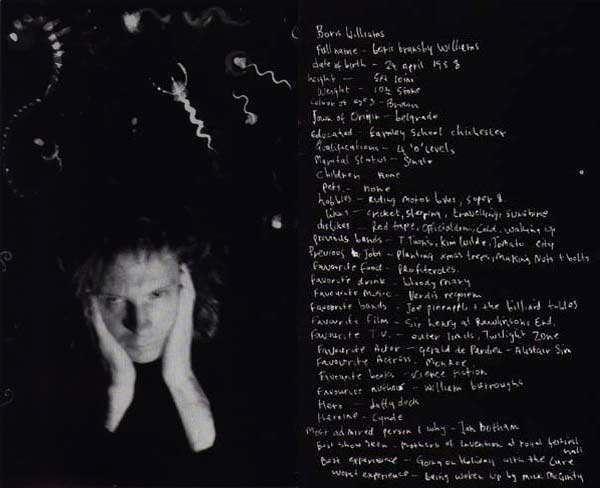 Boris Williams
Full name - boris bransby Williams
date of birth - 24 april 1958
height - 5ft 10in
Weight - 10½ Stone
Colour of eyes - Brown
Town of Origin - belgrade
Educated - Earnley School chichester
Qualifications - 4 'o' levels
Marital Status - Single
Children none
Pets - none
hobbies - Riding motor bikes, super 8.
likes - cricket, sleeping, travelling, sunshine
dislikes - Red tape, officialdom, Cold, waking up
previous bands - T. Twins, Kim Wilde, Tomato city
Previous Jobs - planting xmas trees, Making Nuts + bolts
Favourite food - Profiteroles.
Favorite drink - bloody mary
Favourite Music - Verdis requiem
Favorite bands - Joe pineapple + the billiard tables
Favourite Film - Sir henry at Rawlinsons End.
Favourite T.V. - outer limits, Twilight Zone
Favourite Actor - Gerald de Pardieu - Alistair Sim
Favourite Actress - Menace
Favorite books - science fiction
Favourite author - William burroughs
Hero - daffy duck
Heroine - Cynde
Most admired person & why - Ian botham
Best show seen - Mothers of invention at royal festival hall
Best experience - Going on holiday with the Cure
Worst experience - being woken up by mick McGinty